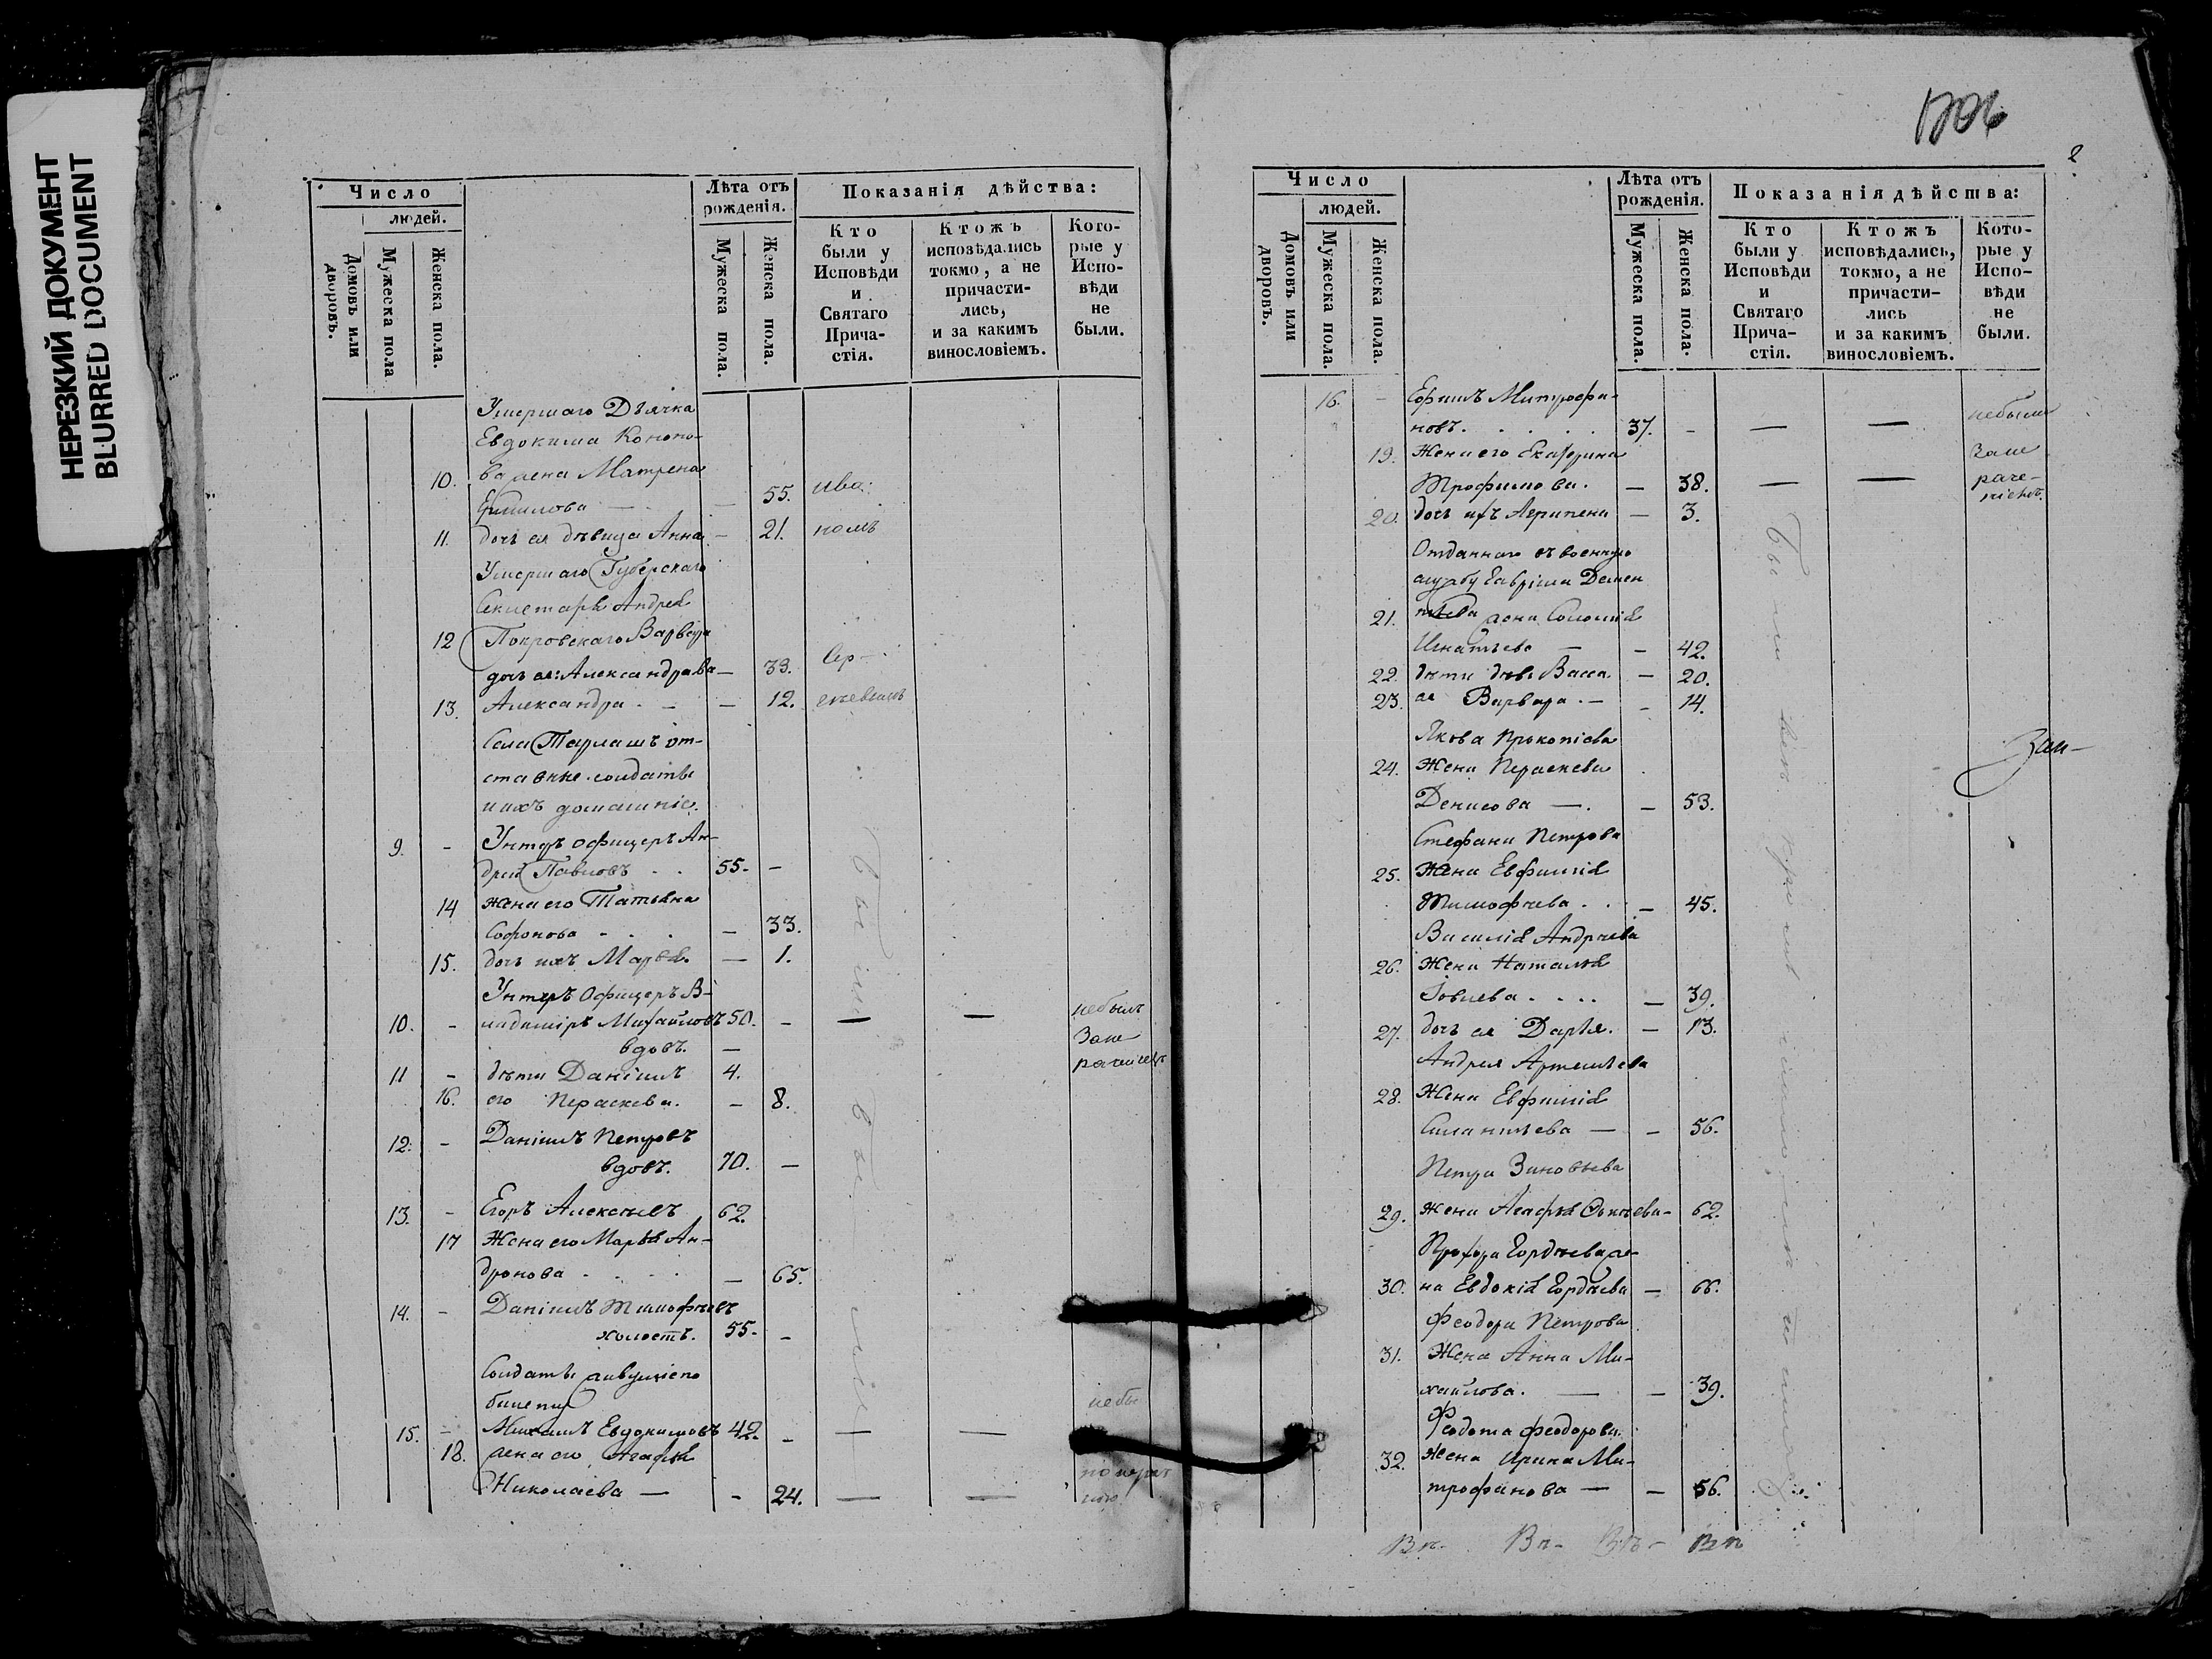 НЕРЕЗКИЙ ДОКУМЕНТ
BLURRED DOCUMENT
Число
людей.
Домовъ или дворовъ.
Мужеска пола
Женска пола.
Лѣта отъ рожденія.
Мужеска пола.
Женска пола.
Показанія дѣйства:
Кто были у Исповѣди и Святаго Прича-стія.
Ктожъ исповѣдались токмо, а не причасти-лись, и за какимъ винословіемъ.
Кото-рые у Испо-вѣди не были.
Умершаго Дьячка
Евдокима Конопо-
10. ва жена Матрена
55.
11. дочь ея дѣвица Анна — 21.
Умершаго Губерскаго
Секретаря Андрея
12 Покровскаго Варвара
дочь ея: Александрова — 33.
13. Александра. — — 12.
Села Тарлашъ от-
ставные солдаты
и ихъ домашніе.
9. - Унтеръ офицеръ Ан-
дрей Павловъ . . 55. -
14 жена его Татьяна
Софонова - . . — 33.
15. дочь ихъ Марья. — 1.
Унтеръ Офицеръ В-
10. - ладиміръ Михайловъ 50. - — — небылъ
вдовъ. — Зане
11 - дѣти Даніилъ 4.
16. его Параскева. — 8.
12. - Даніилъ Петровъ
вдовъ. 70. —
13. - Егоръ Алексѣевъ 62.
17 Жена его Марья Ан-
дронова . . . . — 65.
14. - Даніилъ Тимофѣевъ
холостъ. 55. -
Солдаты живущіе по
билету
15. - Михаилъ Евдокимовъ 42. - — — небы
18. жена его Агафья
Николаева — - 24. — —
Были
1206
2
Число
людей.
Домовъ или дворовъ.
Мужеска пола.
Женска пола.
Лѣта отъ рожденія.
Мужеска пола.
Женска пола.
Показанія дѣйства:
Кто были у Исповѣди и Святаго Прича-стія.
Ктожъ исповѣдались, токмо, а не причасти-лись и за какимъ винословіемъ.
Кото-рые у Испо-вѣди не были.
16. - Ефимъ Митрофа-
новъ. . . . . 37. - — — небыли
19. Жена его Екатерина Зане
Трофимова. — 38. — — раче-
20. дочь ихъ Агрипена — 3. ніемъ.
Отданнаго въ военную
службу Гавріила Демен
21. тьева жена Соломія
Игнатьева — - 42.
22. дѣти дѣв. Васса. — 20.
23. ея Варвара. — - 14.
Якова Прокопіева
24. Жена Параскева
Денисова —. — 53.
Стефана Петрова
25. Жена Евфимія
Тимофѣева . . — 45.
Василія Андрѣева
26. Жена Наталья
Іовлева . . . . — 39.
27. дочь ея Дарья. — 13.
Андрея Артемьева
28. Жена Евфимія
Силантьева — - 56.
Петра Зиновьева
29. Жена Агафья - 62.
Прохора Гордѣева же-
30. на Евдокія Гордѣева — 66.
Феодора Петрова
31. Жена Анна Ми-
хайлова. — — 39.
Федота Феодорова
32. Жена Ирина Ми-
трофанова — — 56.
Были